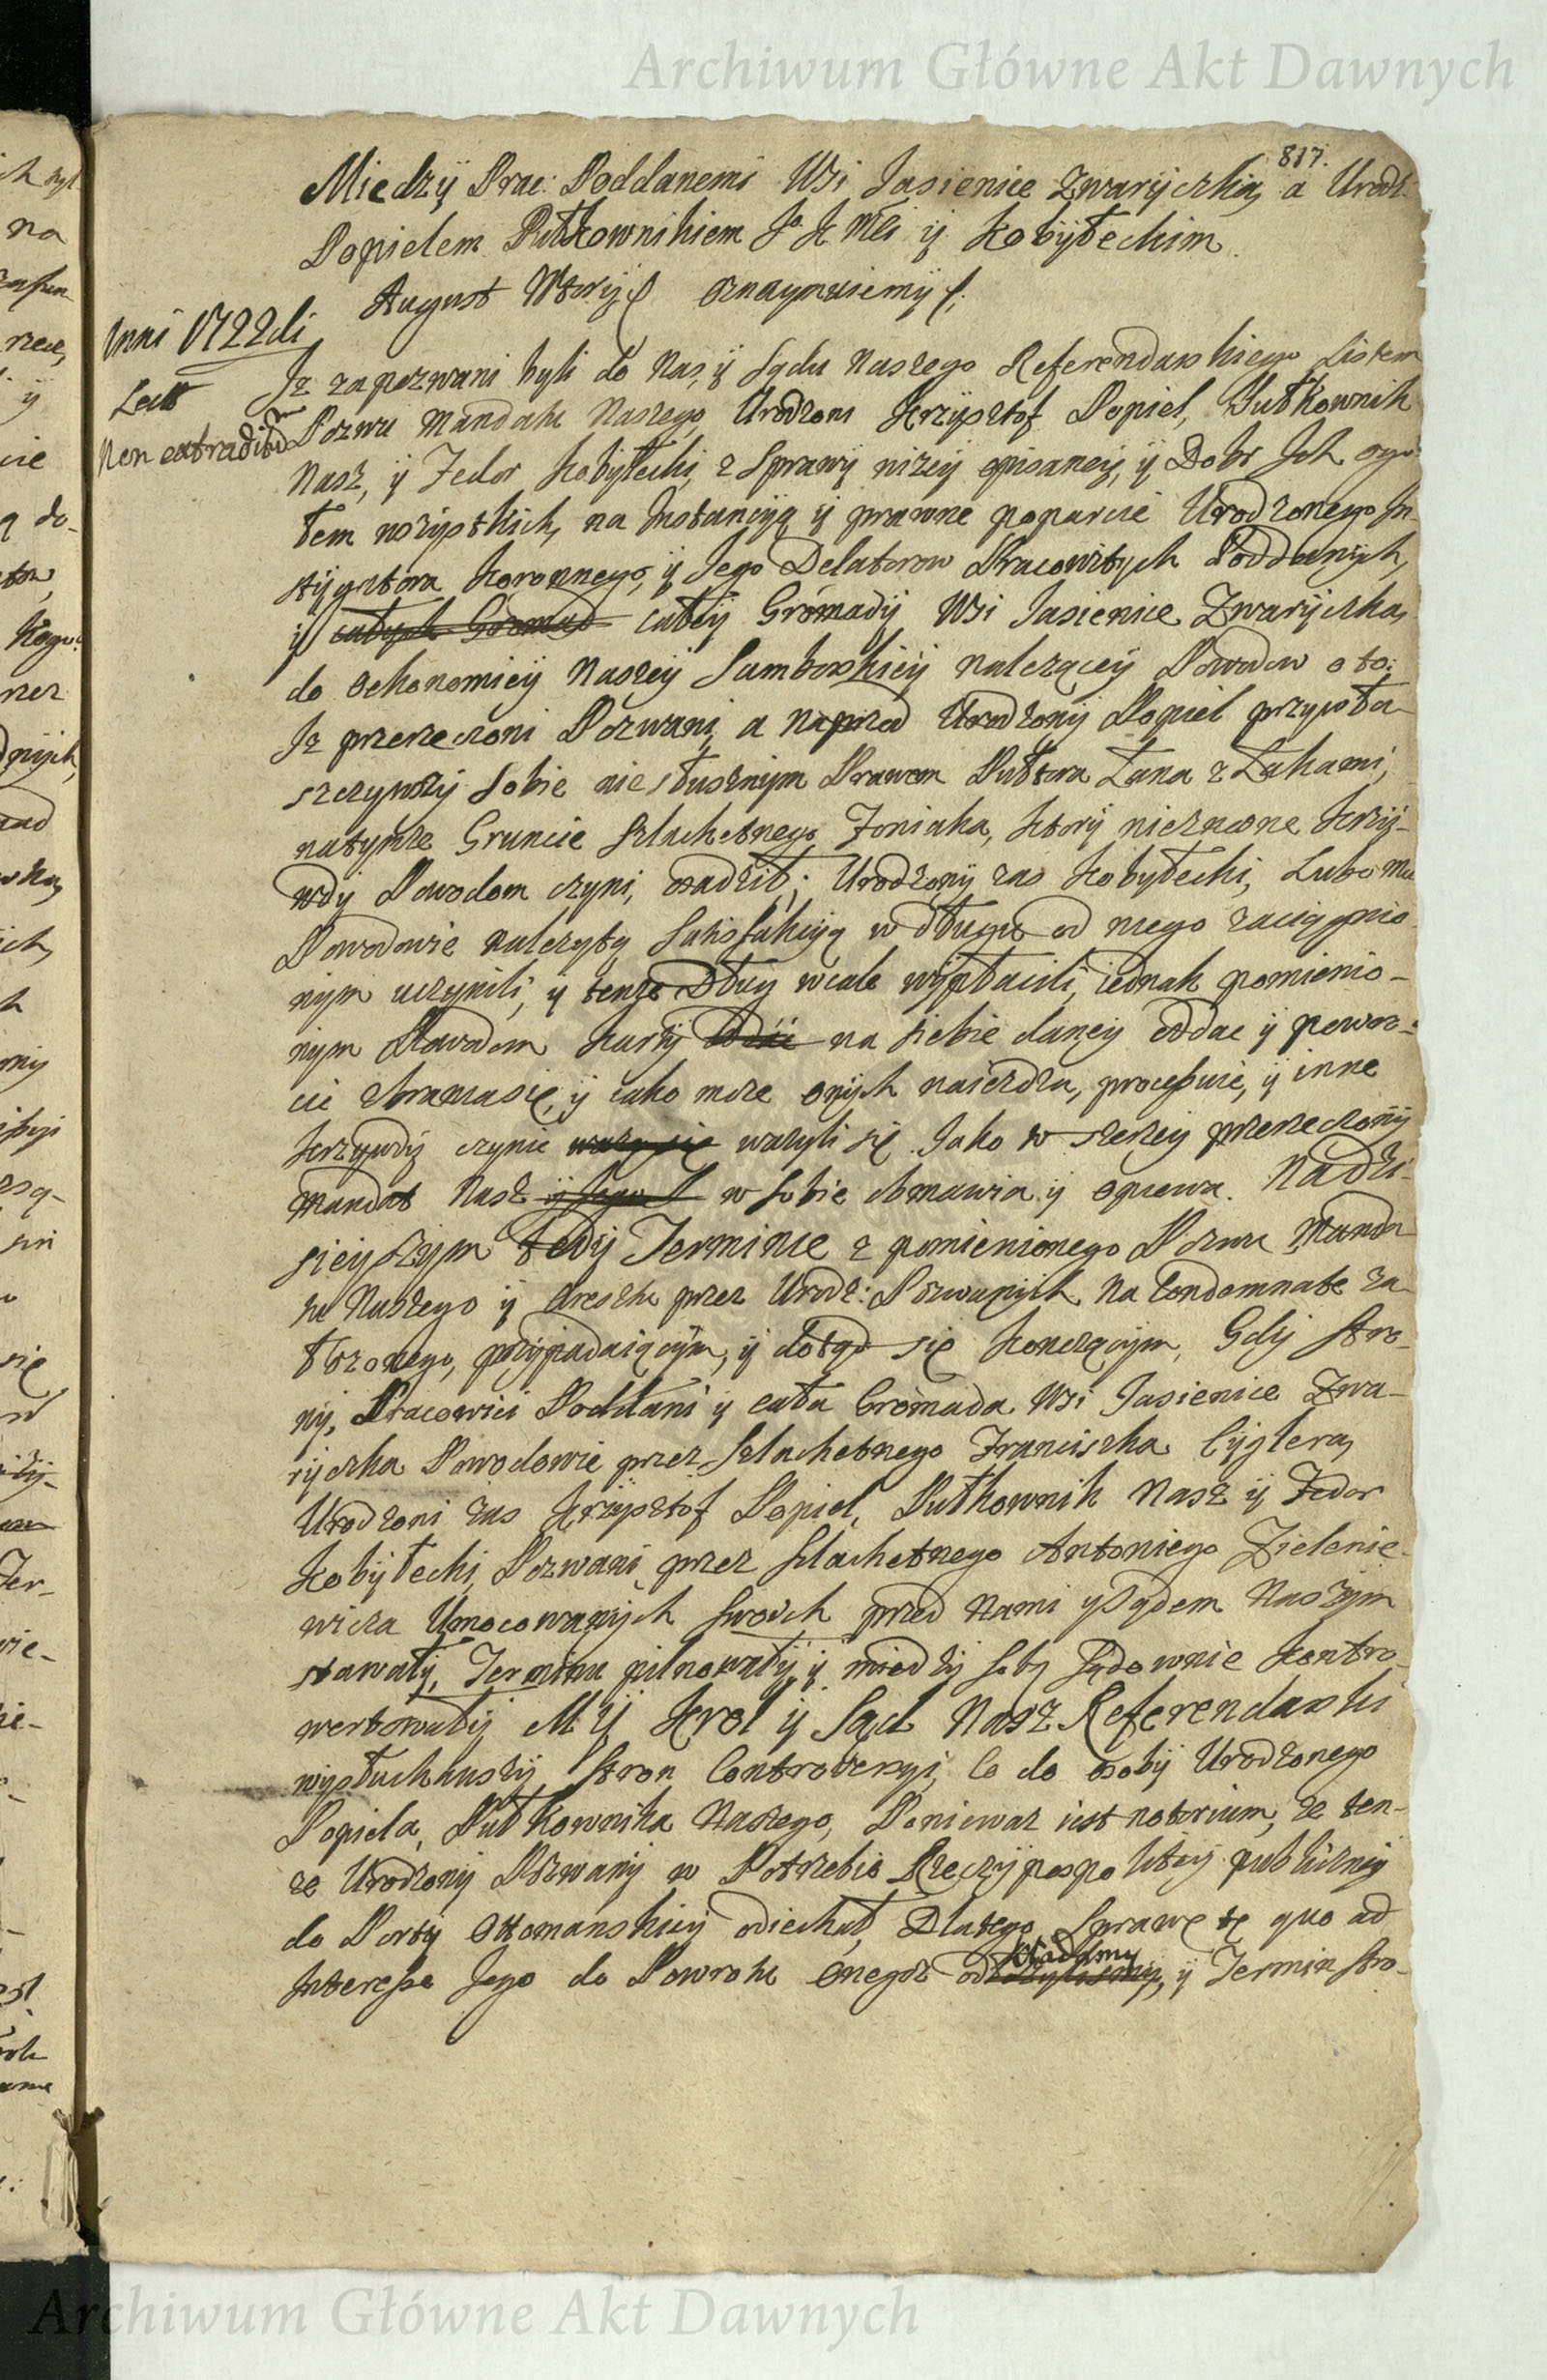 Archiwum Główne Akt Dawnych
817.
Miedzy Prac: Poddanemi Wsi Jasienice Zwaryczką a Urodz:
Popielem Pułkownikiem J. K. Mści y Kobyłeckim.
August Wtory oznaymuiemy
Anni 1722di
Lect
Non extraditũ
Iz zapozwani byli do Nas, y Sądu Naszego Referendarskiego Listem
Pozwu Mandatu Naszego Urodzoni Krzysztof Popiel, Pułkownik
Nasz, y Fedor Kobyłecki, z Sprawy niżey opisaney, y Dobr Ich ogu-
łem wszystkich, na Instancyą y prawne poparcie Urodzonego In-
stygatora Koronnego, y Jego Delatorow Pracowitych Poddanych,
y całych Gromad całey Gromady Wsi Jasienice Zwaryczka,
do Oekonomiey Naszey Samborskiey należącey Powodow o to:
Iz przerzeczoni Pozwani, a naprzod Urodzony Popiel przywła-
szczywszy sobie niesłusznym Prawem Pułtora Łana z Łąkami,
natymże Gruncie Szlachetnego Foniaka, ktory nieznosne Krzy-
wdy Powodom czyni, osadził; Urodzony zas Kobyłecki, Lubo mu
Powodowie należytą Satisfakcyą w długu od niego zaciągnio-
nym uczynili, y tenże Dług wcale wypłacili, iednak pomienio-
nym Powodom Karty na siebie daney oddac y powro-
cic zbrania się, y iako może onych naieżdża, processuie, y inne
Krzywdy czynic waży się ważyli się. Jako w szerzey przerzeczony
Mandat Nasz w sobie obmawia y opiewa. Na dzi-
sieyszym tedy Terminie z pomienionego Pozwu Manda-
tu Naszego y Aresztu przez Urodz: Pozwanych na Condemnatę za-
łożonego, przypadaiącym, y dotąd się kończącym, Gdy Stro-
ny, Pracowici Poddani y cała Gromada Wsi Jasienice Zwa-
ryczka Powodowie przez Szlachetnego Franciszka Cyglera,
Urodzoni zas Krzysztof Popiel, Pułkownik Nasz y Fedor
Kobyłecki Pozwani przez Szlachetnego Antoniego Zielenie-
wicza Umocowanych Swoich przed Nami y Sądem Naszym
stawały, Terminu pilnowały y między sobą Sądownie Kontro-
wertowały My Krol y Sąd Nasz Referendarski
wysłuchawszy Stron Controversyi, Co do osoby Urodzonego
Popiela, Pułkownika Naszego, Ponieważ iest notorium, że ten-
że Urodzony Pozwany w Potrzebie Rzeczypospolitey publiczney
do Porty Ottomanskiey odiechał, Dlatego Sprawę tę quo ad
kładamy
Interesse Jego do Powrotu onegoż odłożylismy, y Termin Stro-
Archiwum Główne Akt Dawnych